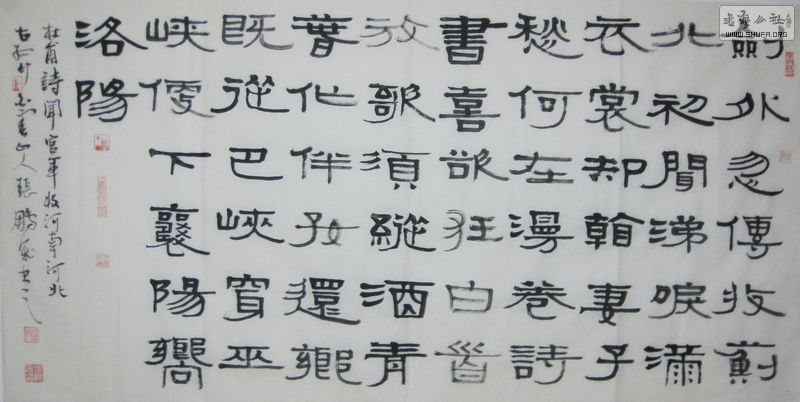 劍外忽傳收薊
北初聞涕淚滿
衣裳却看妻子
愁何在漫卷詩
書喜欲狂白首
放歌須縱酒青
春作伴好還鄉
既從巴峽穿巫
峽便下襄陽嚮
洛陽
杜甫詩聞官軍收河南河北
山人張鵬書之
書法公社
WWW.SHUFA.ORG